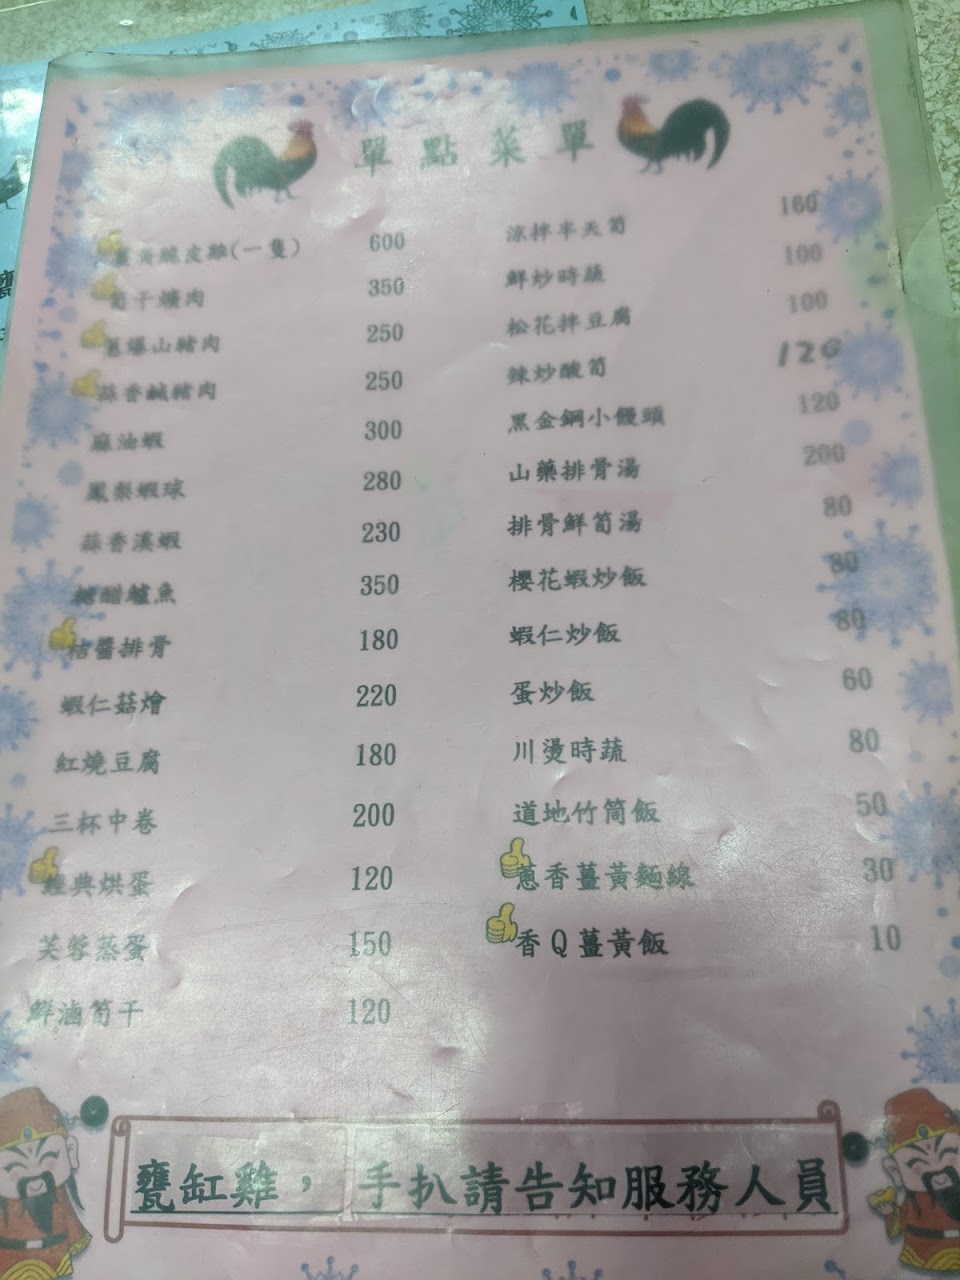 單點菜單
薑黃脆皮雞(一隻) 600
筍干爌肉 350
蔥爆山豬肉 250
蒜香鹹豬肉 250
麻油蝦 300
鳳梨蝦球 280
蒜香溪蝦 230
糖醋鱸魚 350
桔醬排骨 180
蝦仁菇燴 220
紅燒豆腐 180
三杯中卷 200
經典烘蛋 120
芙蓉蒸蛋 150
鮮滷筍干 120
涼拌半天筍 160
鮮炒時蔬 100
松花拌豆腐 100
辣炒酸筍 120
黑金鋼小饅頭 120
山藥排骨湯 200
排骨鮮筍湯 80
櫻花蝦炒飯 80
蝦仁炒飯 80
蛋炒飯 60
川燙時蔬 80
道地竹筒飯 50
蔥香薑黃麵線 30
香Q薑黃飯 10
甕缸雞， 手扒請告知服務人員